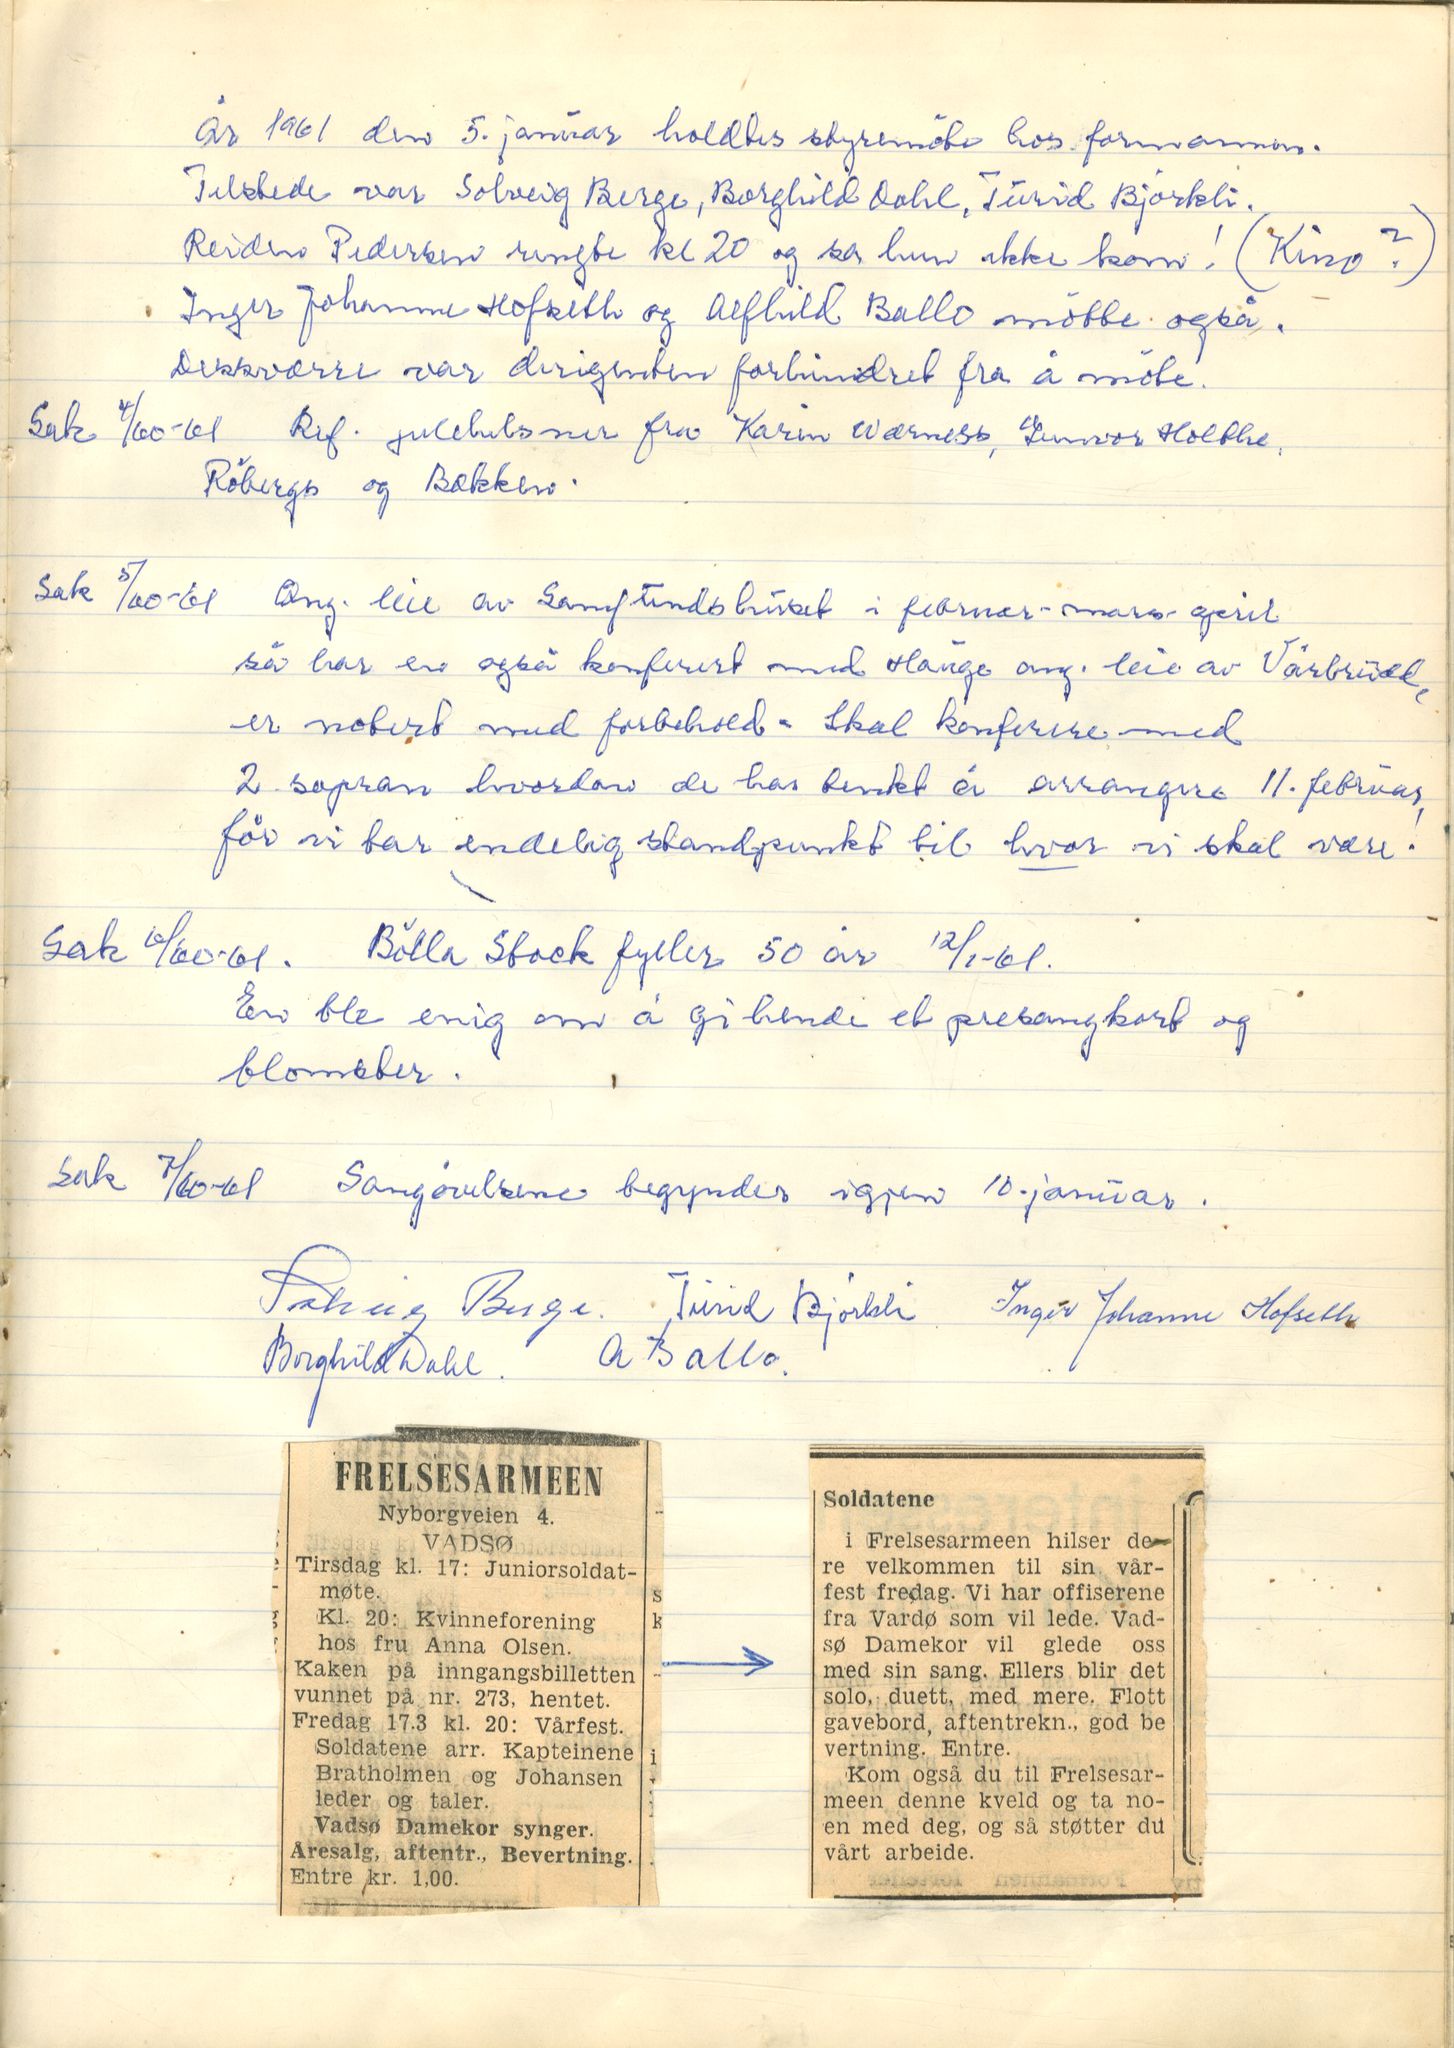 År 1961 den 5. januar holdtes styremöte hos formannen.
Tilstede var Solveig Berge, Borghild Dahl, Turid Björkli.
Reidun Pedersen ringte kl 20 og sa hun ikke kom! (Kino?)
Inger Johanne Hofseth og Alfhild Ballo mötte også.
Dessværre var dirigenten forhindret fra å möte.
Sak 4/60-61 Ref. julehilsner fra Karin Wærness, Gunvor Holthe,
Röbergs og Bakken.
Sak 5/60-61 Ang. leie av Samfundshuset i februar-mars-april
så har en også konferert med Hauge ang. leie av Vårbrudd,
er notert med forbehold. Skal konferere med
2. sopran hvordan de har tenkt å arrangere 11. februar,
för vi tar endelig standpunkt til hvor vi skal være!
Sak 6/60-61. Bölla Stock fyller 50 år 12/1-61.
En ble enig om å gi hende et presangkort og
blomster.
Sak 7/60-61 Sangövelsene begynder igjen 10. januar.
Solveig Berge. Turid Björkli Inger Johanne Hofseth
Borghild Dahl. A Ballo.
FRELSESARMEEN
Nyborgveien 4.
VADSØ
Tirsdag kl. 17: Juniorsoldat-
møte.
Kl. 20: Kvinneforening
hos fru Anna Olsen.
Kaken på inngangsbilletten
vunnet på nr. 273, hentet.
Fredag 17.3 kl. 20: Vårfest.
Soldatene arr. Kapteinene
Bratholmen og Johansen
leder og taler.
Vadsø Damekor synger.
Åresalg, aftentr., Bevertning.
Entre kr. 1,00.
Soldatene
i Frelsesarmeen hilser de-
re velkommen til sin vår-
fest fredag. Vi har offiserene
fra Vardø som vil lede. Vad-
sø Damekor vil glede oss
med sin sang. Ellers blir det
solo, duett, med mere. Flott
gavebord, aftentrekn., god be
vertning. Entre.
Kom også du til Frelsesar-
meen denne kveld og ta no-
en med deg, og så støtter du
vårt arbeide.